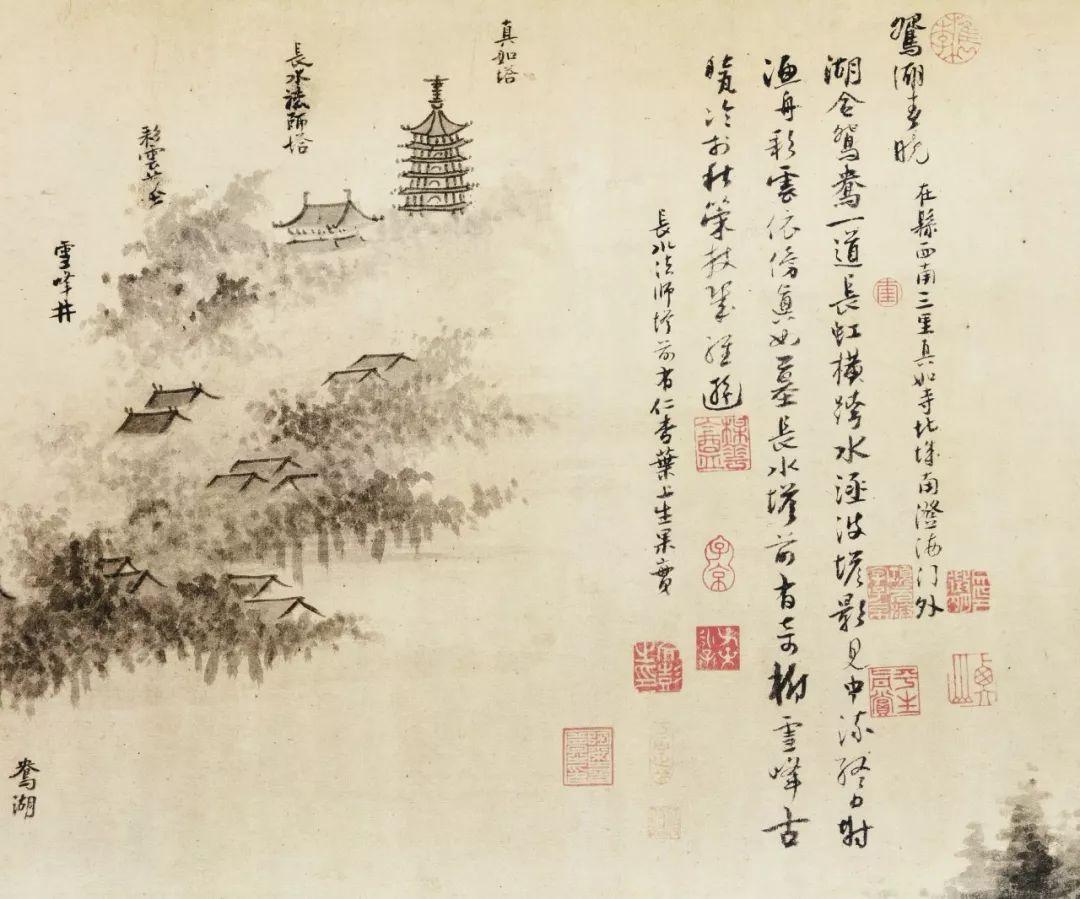 鴛湖春曉
在縣西南三里真如寺北城南澄海门外
湖合鴛鴦一道長虹橫跨水涵波塔影見中流終日射
漁舟彩雲依傍真如墓長水塔前有奇樹雪峰古
甃冷於秋策杖幾經遊
長水法師塔前有仁杏葉上生果實
真如塔
長水法師塔
彩雲墓
雪峰井
鴦湖